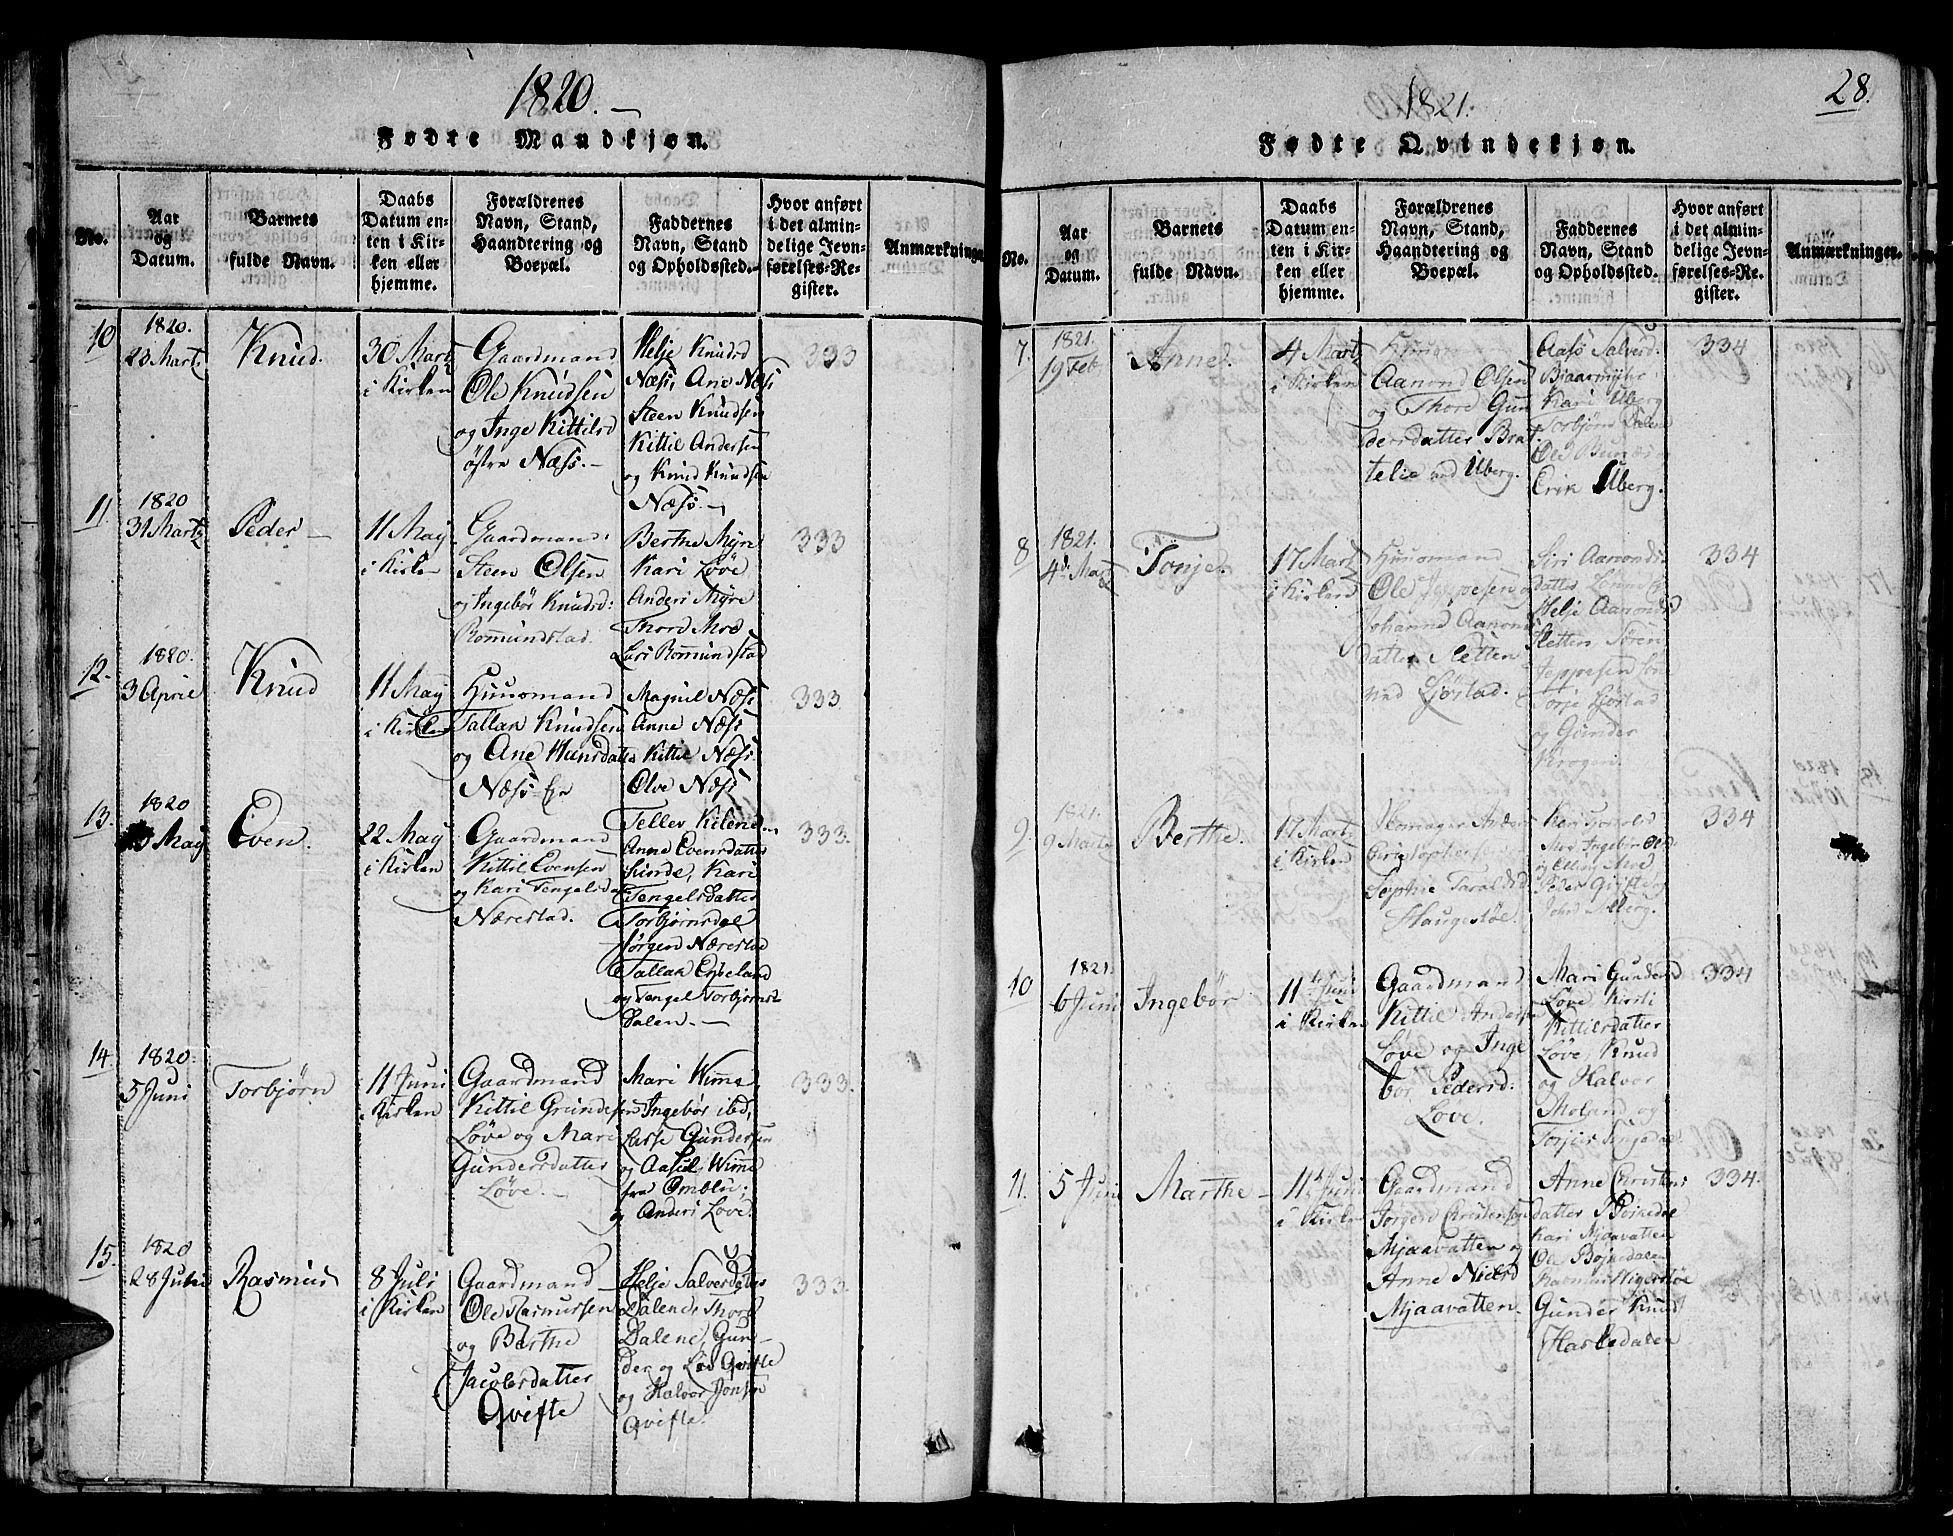 1820.
Fødte Mandkjøn.
No.
Aar og Datum.
Barnets fulde Navn.
Daabs Datum enten i Kirken eller hjemme.
Forældrenes Navn, Stand, Haandtering og Boepæl.
Faddernes Navn, Stand og Opholdssted.
Hvor anført i det almindelige Jevnførelses-Register.
Anmærkninger
10
1820.
23 Martz
Knud.
30 Martz
i Kirken
Gaardmand
Ole Knudsen
og Inge Kittilsd
østre Næss.
Helje Knudsd
Næss, Ane Næss
Steen Knudsen
Kittil Andersen
og Knud Knudsen
Næss.
333
11.
1820
31 Martz
Peder
11 May
i Kirken
Gaardmand
Steen Olsen
og Ingebør Knudsd:
Romundstad.
Berthe Myre
Kari Løve
Anders Myre
Thord Moe
Lars Romundstad
333
12.
1820.
3 April
Knud
11 May
i Kirken
Huusmand
Tallak Knudsen
og Ane Hansdatter
Næss-Eje
Magnil Næss
Anne Næss
Kittil Næss.
Olve Næss
333
13.
1820
5 May
Even.
22 May
i Kirken
Gaardmand
Kittil Evensen
og Kari Tengelsd
Nærestad.
Tellev Kilene
Anne Evensdatter
Linde, Kari
Tengelsdatter
Torbjørnsdal
Jørgen Nærestad
Tallak Espeland
og Tengel Torbjørns
Dalen.
333.
14.
1820.
5 Juni
Torbjørn
11 Juni
i Kirken
Gaardmand
Kittil Gundersen
Løve og Mari
Gundersdatter
Løve.
Mari Wimme
Ingebør ibd,
Lasse Gundersen
og Aasul Wimme
fra Omblie,
og Anders Løve.
333.
15.
1820
28 Juni
Rasmus
8 Juli
i Kirken
Gaardmand
Ole Rasmussen
og Berthe
Jacobsdatter
Qvifte
Helje Salversdatter
Dalene, Thord
Dalene, Gun-
der og Liv Qvifte
og Halvor Jonsen
Qvifte.
333.
1821.
28.
Fødte Qvindekjøn.
No.
Aar og Datum.
Barnets fulde Navn.
Daabs Datum enten i Kirken eller hjemme.
Forældrenes Navn, Stand, Haandtering og Boepæl.
Faddernes Navn, Stand og Opholdssted.
Hvor anført i det almindelige Jevnførelses-Register.
Anmærkninger.
7.
1821.
19 Feb
Anne.
4 Martz
i Kirken
Aanond Olsen
og Thore Gun
dersdatter Brat
telie ved Uberg.
Aase Salvesd.
Bjaarmyhr
Kari Uberg
Torbjørn Dalen
Erik Uberg.
334
8
1821.
4de Martz
Tonje
17 Martz
i Kirken
Huusmand
Ole Jeppesen og
Johanne Aanonds
datter Sletten
ved Sjøstad.
Siri Aanonds
datter
Helje Aanonds
Sletten Søren
Jeppesen
Torje Sjøstad
og Gunder
Krogen.
334
9.
1821.
9 Martz
Berthe.
17 Martz
i Kirken
Anders
Christophersen
Sophie Taraldsd
Haugestøe.
Moe Ingebør Ols
og Elling Moe
Peder Qvifte og
John Solberg.
334
10
1821.
6 Juni
Ingebør
11te Juni
i Kirken
Gaardmand
Kittil Andersen
Løve og Inge
bor Pedersd:
Løve.
Mari Gundersd
Løve Kirsti
Kittilsdatter
Løve, Knud
og Halvor
Moland og
334
11.
5 Juni
Marthe
11te Juni
i Kirken
Gaardmand
Jørgen Christensen
Mjaavatten og
Anne Nielsd
Mjaavatten.
Anne Christens
datter Bøjedal
Kari Mjaavatten
Ole Bøjedalen
Gunder Knud
Haskedalen
334.